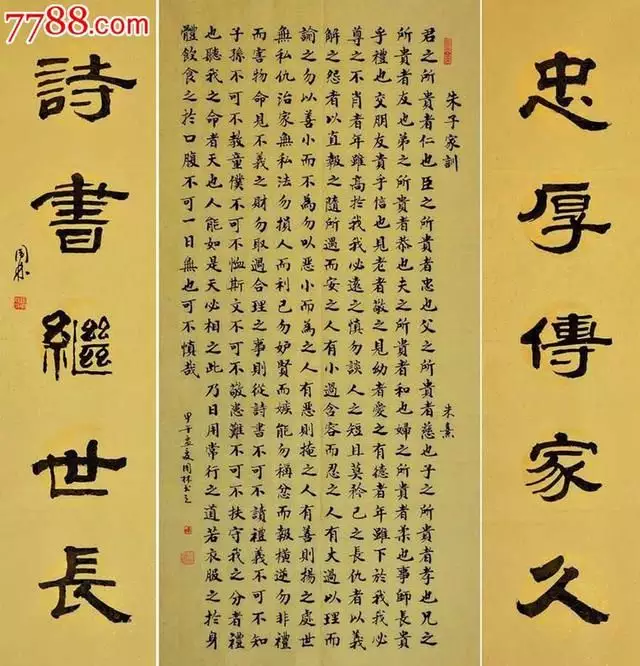 7788.com
忠厚傳家久
朱子家訓 朱熹
君之所貴者仁也臣之所貴者忠也父之所貴者慈也子之所貴者孝也兄之
所貴者友也弟之所貴者恭也夫之所貴者和也婦之所貴者柔也事師長貴
乎禮也交朋友貴乎信也見老者敬之見幼者愛之有德者年雖下於我我必
尊之不肖者年雖高於我我必遠之慎勿談人之短且莫矜己之長仇者以義
解之怨者以直報之隨所遇而安之人有小過含容而忍之人有大過以理而
諭之勿以善小而不為勿以惡小而為之人有惡則掩之人有善則揚之處世
無私仇治家無私法勿損人而利己勿妒賢而嫉能勿稱忿而報橫逆勿非禮
而害物命見不義之財勿取遇合理之事則從詩書不可不讀禮義不可不知
子孫不可不教童僕不可不恤斯文不可不敬患難不可不扶守我之分者禮
也聽我之命者天也人能如是天必相之此乃日用常行之道若衣服之於身
體飲食之於口腹不可一日無也可不慎哉
甲午立夏周林書之
詩書繼世長
周林